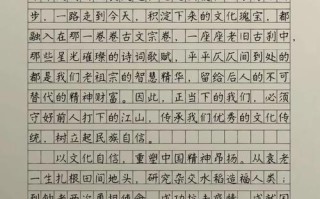 步，一路走到今天，积淀下来的文化瑰宝，都
融入在那一卷卷古文宗卷，一座座老旧古刹中，
那些星光璀璨的诗词歌赋，平平仄仄间到处的
都是我们老祖宗的智慧精华，留给后人的不可
替代的精神财富。因此，正当下的我们，必须
守好前人打下的江山，传承我们优秀的文化传
统，树立起民族自信。
以文化自信，重塑中国精神昂扬。从袁老
一生扎根田间地头，研究杂交水稻造福人类；